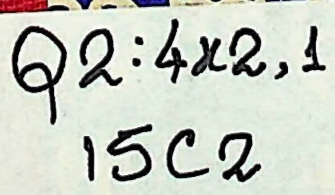 Q2:4x2,1
15C2